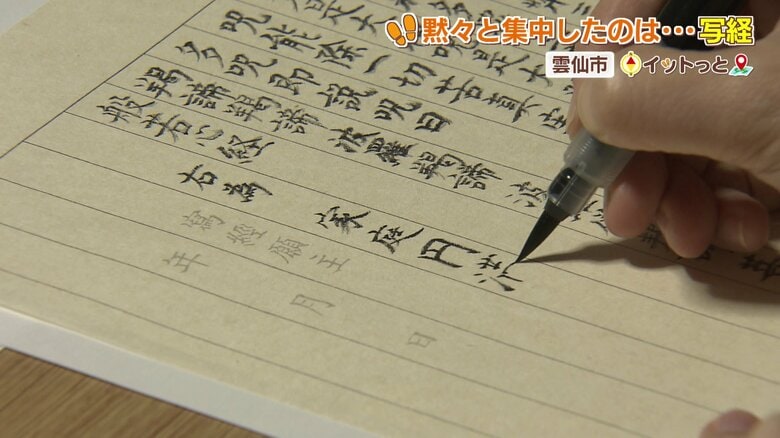 黙々と集中したのは…写経
雲仙市
イットっと
呪能除一切苦真実
多呪即説呪曰
羯諦羯諦 波羅羯諦 波羅
般若心経
右為 家庭円
寫經願主
年 月 日